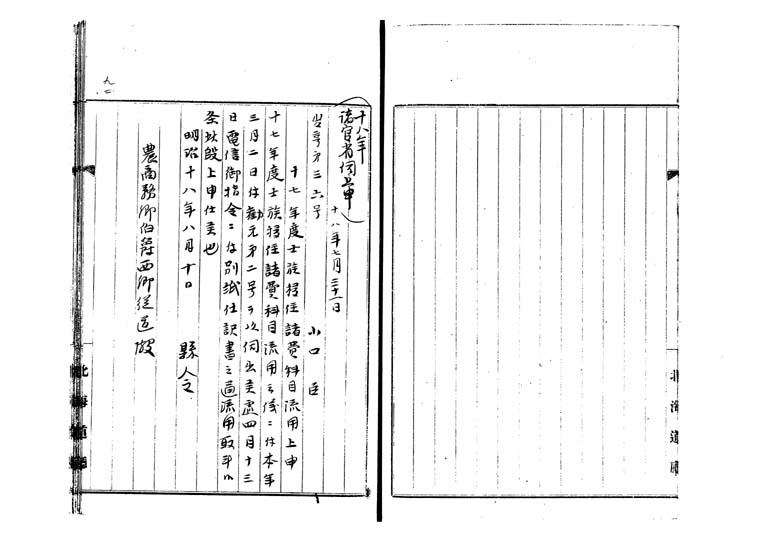 十八年
諸官省伺上申
十八年七月三十一日
第三六号
小口臣
十七年度士族移住諸費科目流用上申
十七年度士族移住諸費科目流用之儀ニ付本年
三月二日付勧元第二号ヲ以伺出候處四月十三
日電信御指令ニ付別紙仕訳書之通流用取計
候此段上申仕候也
明治十八年八月十日
縣令
農商務卿伯爵西郷従道殿
北海道廳
北海道廳